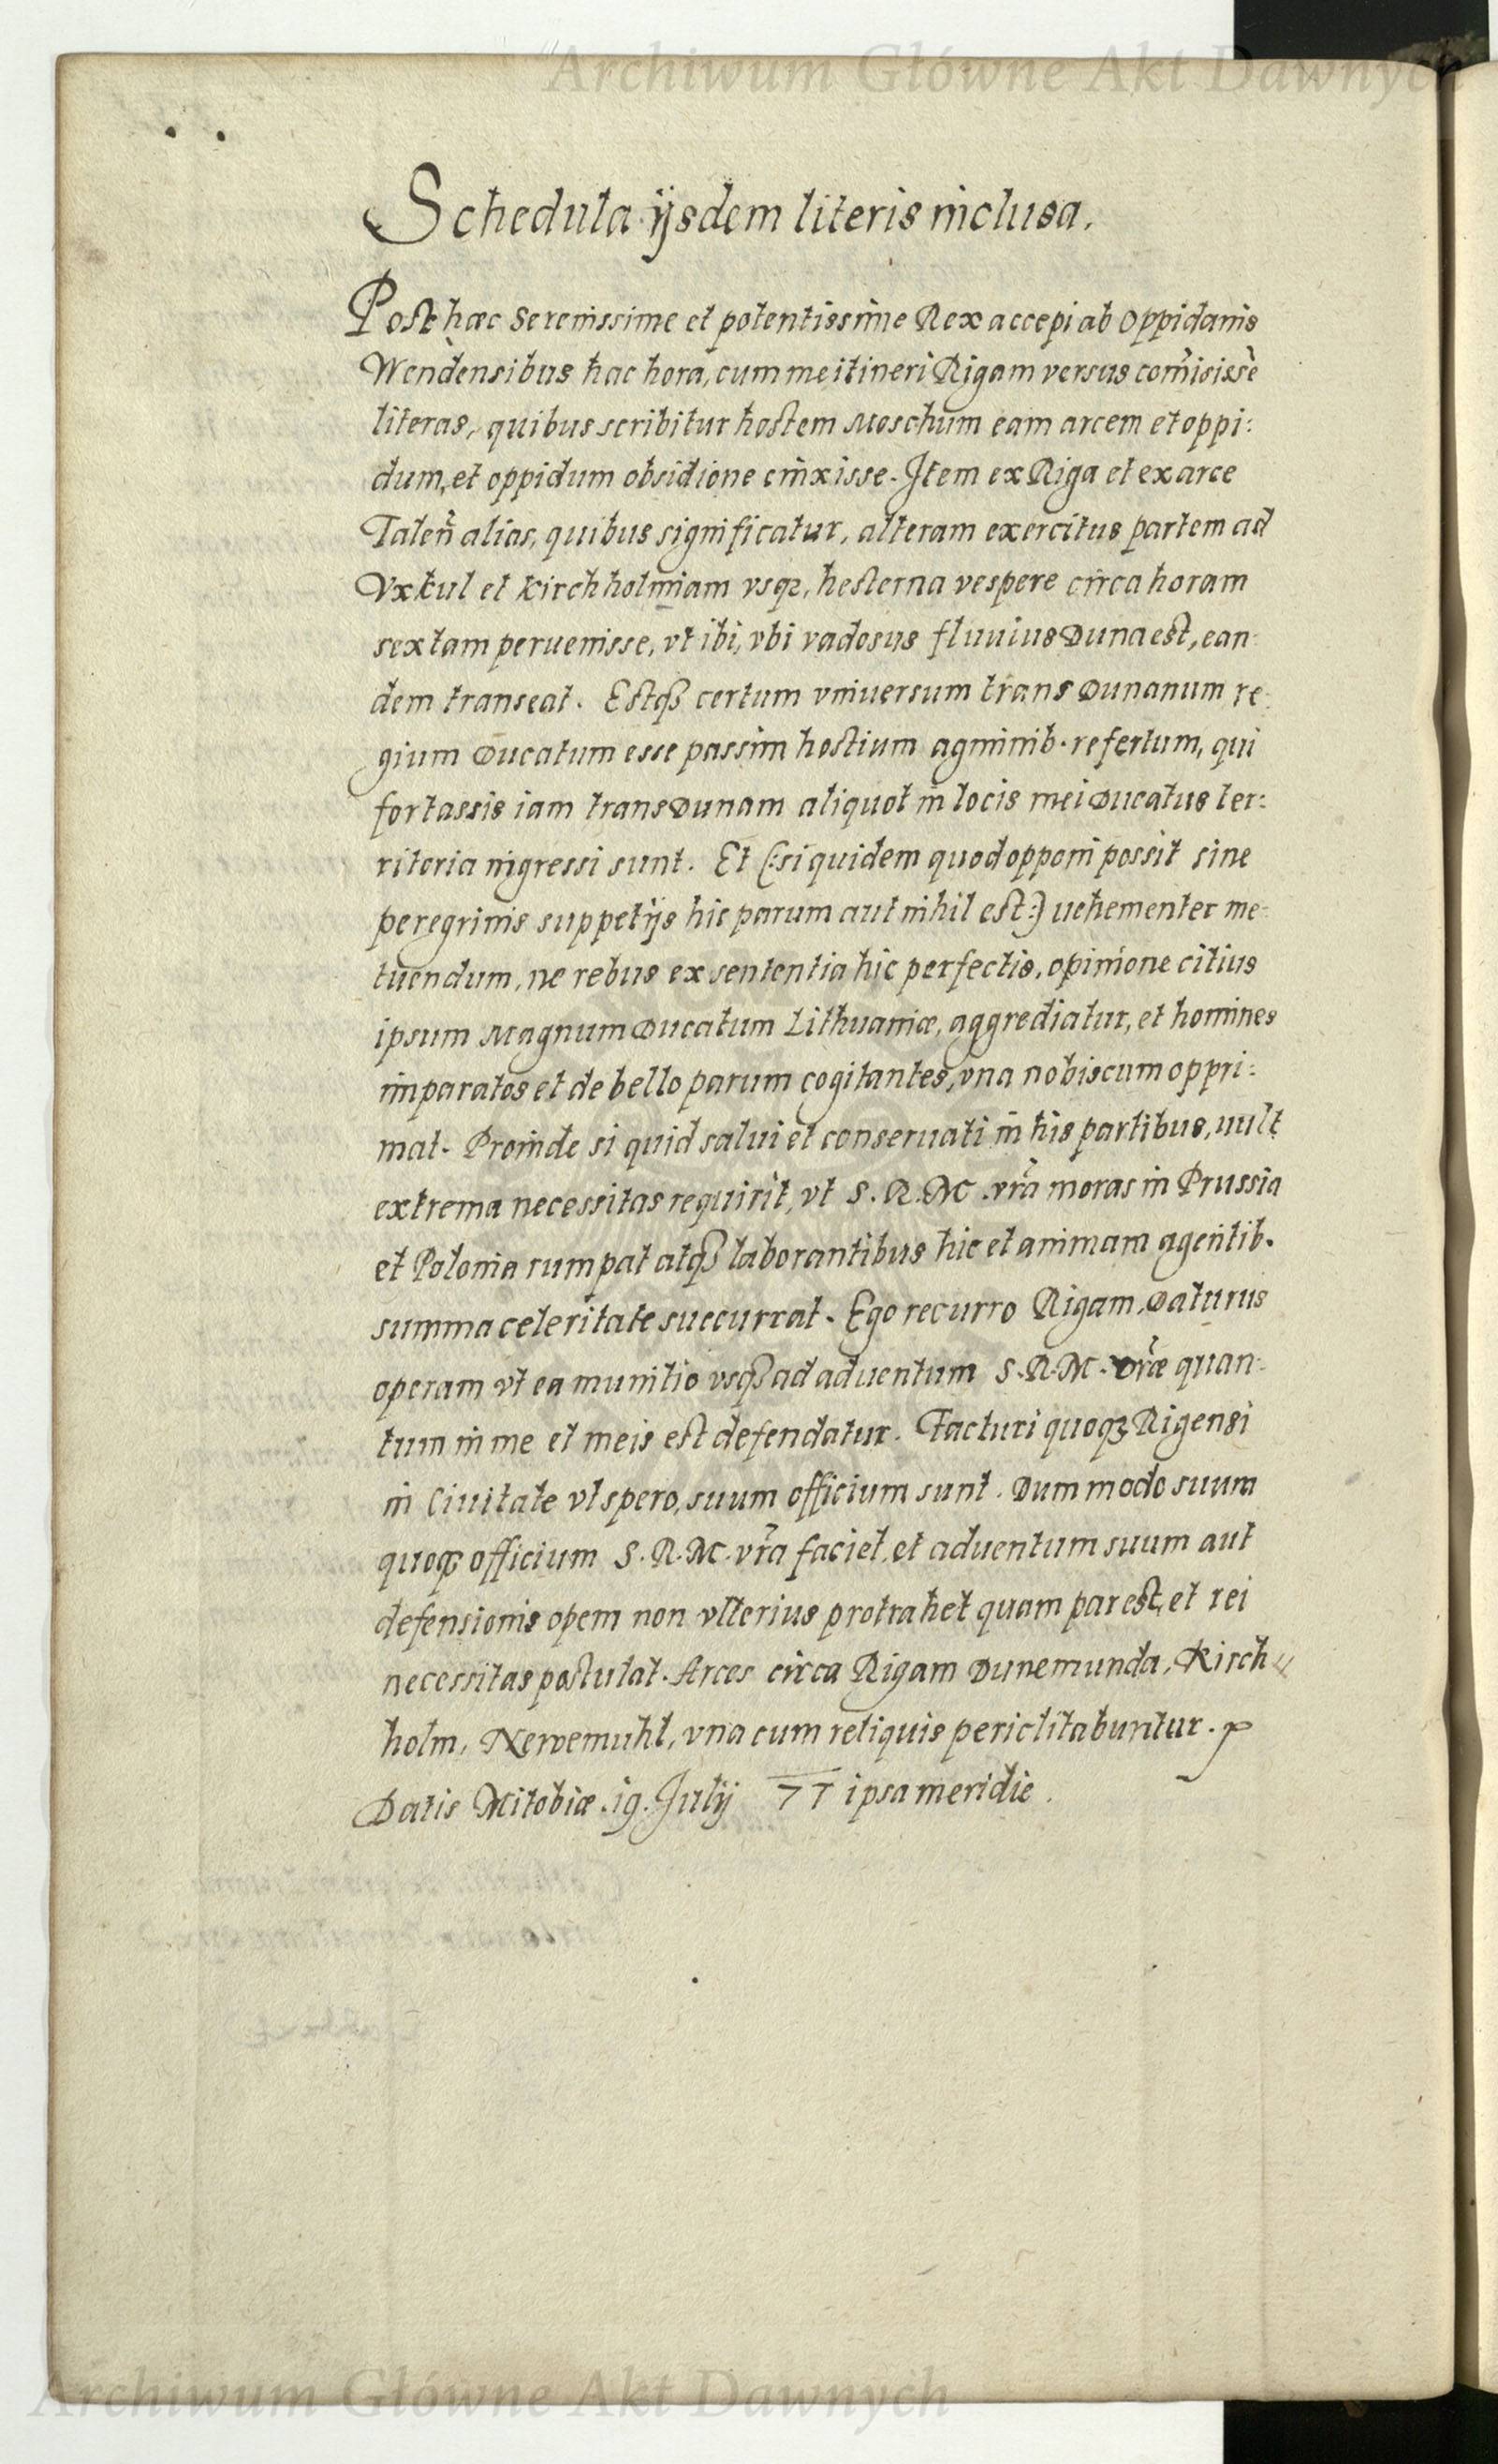 Archiwum Główne Akt Dawnych
Schedula ijsdem literis inclusa.
Post hæc Serenissime et potentissime Rex accepi ab Oppidanis
Wendensibus hac hora, cum me itineri Rigam versus com̃isissẽ
literas, quibus scribitur hostem Moschum eam arcem et oppi:
dum, et oppidum obsidione cinxisse. Item ex Riga et ex arce
Taleñ alias, quibus significatur, alteram exercitus partem ad
Vxkul et Kirchholmiam vsq3, hesterna vespere circa horam
sextam peruenisse, vt ibi, vbi vadosus fluuius Duna est, ean:
dem transeat. Estq3 certum vniuersum trans Dunanum re:
gium Ducatum esse passim hostium agminib. refertum, qui
fortassis iam trans Dunam aliquot in locis mei Ducatus ter:
ritoria ingressi sunt. Et (:siquidem quod opponi possit sine
peregrinis suppetijs hic parum aut nihil est:) uehementer me:
tuendum, ne rebus ex sententia hic perfectis, opinione citius
ipsum Magnum Ducatum Lithuaniæ, aggrediatur, et homines
imparatos et de bello parum cogitantes, vna nobiscum oppri:
mat. Proinde si quid salui et conseruati in his partibus, uult
extrema necessitas requirit, vt S. R. M. vrã moras in Prussia
et Polonia rumpat atq3 laborantibus hic et animam agentib.
summa celeritate succurrat. Ego recurro Rigam, Daturus
operam vt ea munitio vsq3 ad aduentum S. R. M. vrã̃e quan:
tum in me et meis est defendatur. Facturi quoq3 Rigensi
in Ciuitate vt spero, suum officium sunt. Dummodo suum
quoq3 officium S. R. M. vrã faciet, et aduentum suum aut
defensionis opem non vlterius protrahet quam par est, et rei
necessitas postulat. Arces circa Rigam Dunemunda, Kirch
holm, Newemuhl, vna cum reliquis periclitabuntur.
Datis Mitobiæ .19. Julij 77 ipsa meridie.
Archiwum Główne Akt Dawnych